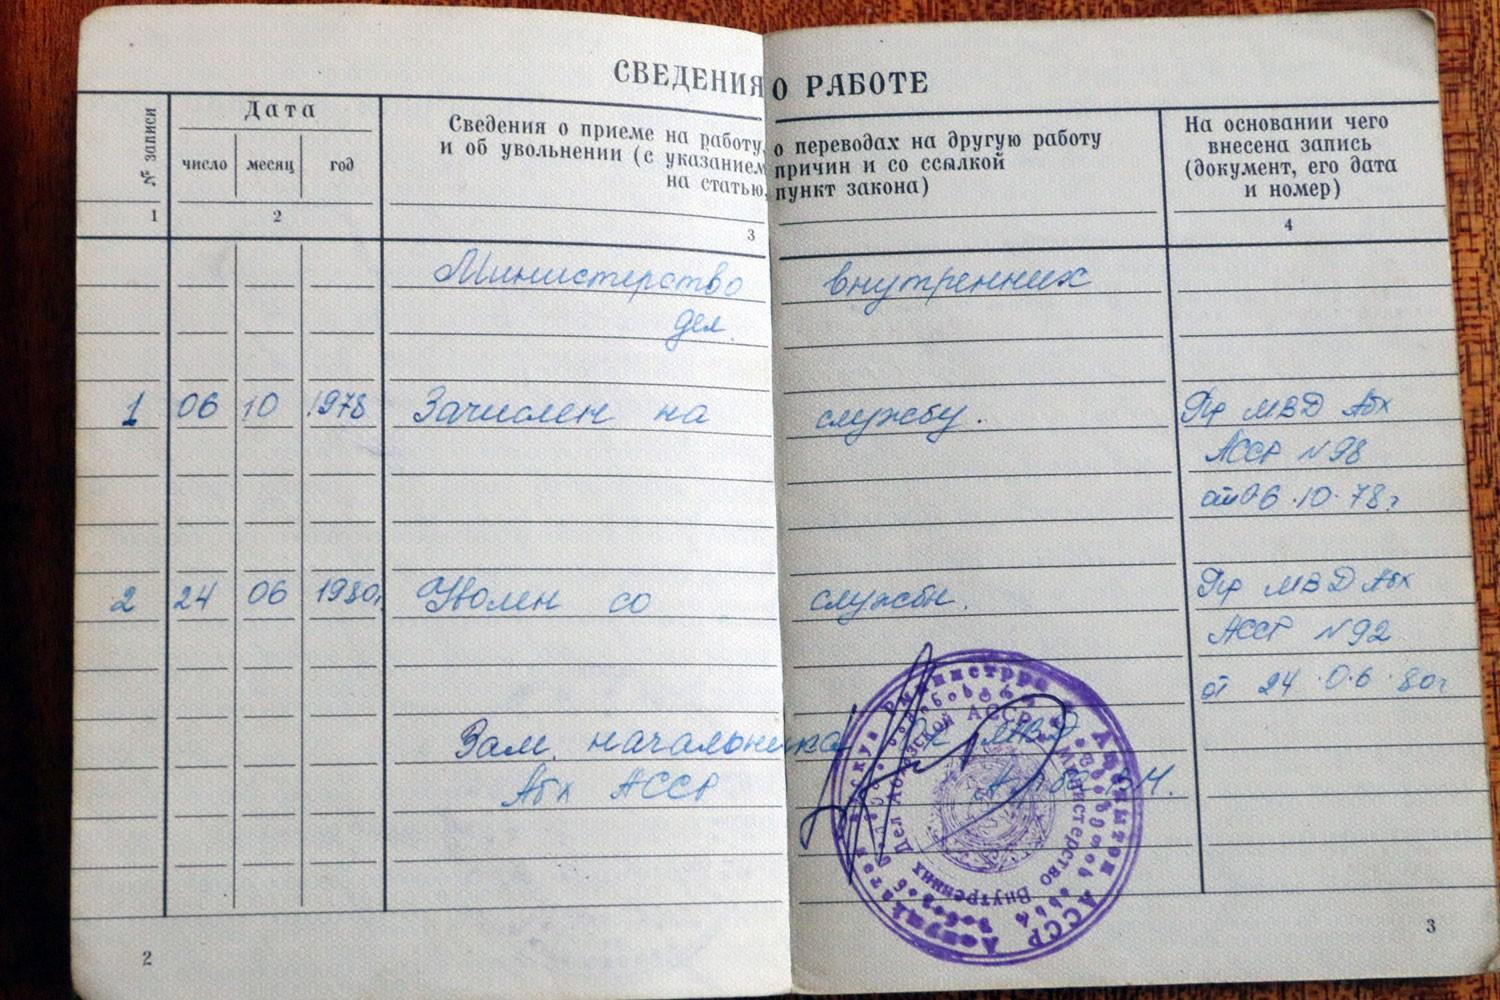 СВЕДЕНИЯ О РАБОТЕ
№ записи
Дата
число месяц год
Сведения о приеме на работу, о переводах на другую работу
и об увольнении (с указанием причин и со ссылкой
на статью, пункт закона)
На основании чего
внесена запись
(документ, его дата
и номер)
1 2 3 4
Министерство внутренних
дел.
1 06 10 1978 Зачислен на службу. Пр МВД Абх
АССР N98
от 06.10.78г
2 24 06 1980г. Уволен со службы. Пр МВД Абх
АССР N92
от 24.06.80г
Зам. начальника МВД
Абх АССР
Министерство Внутренних Дел Абхазской АССР
2
3